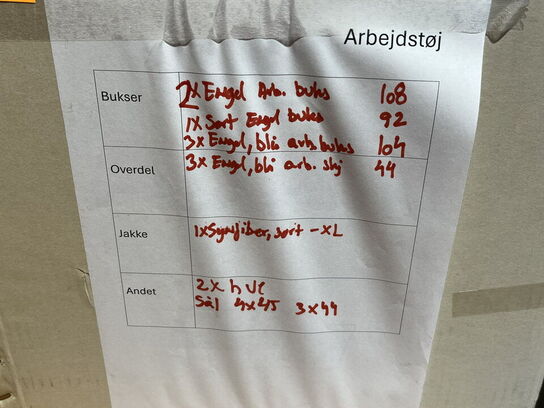 Arbejdstøj
Bukser 2x Engel Arb. buks 108
1x Sort Engel buks 92
3x Engel, blå arb. buks 104
Overdel 3x Engel, blå arb. 44
Jakke 1x sort - XL
Andet 2x
Sål 4x45 3x44